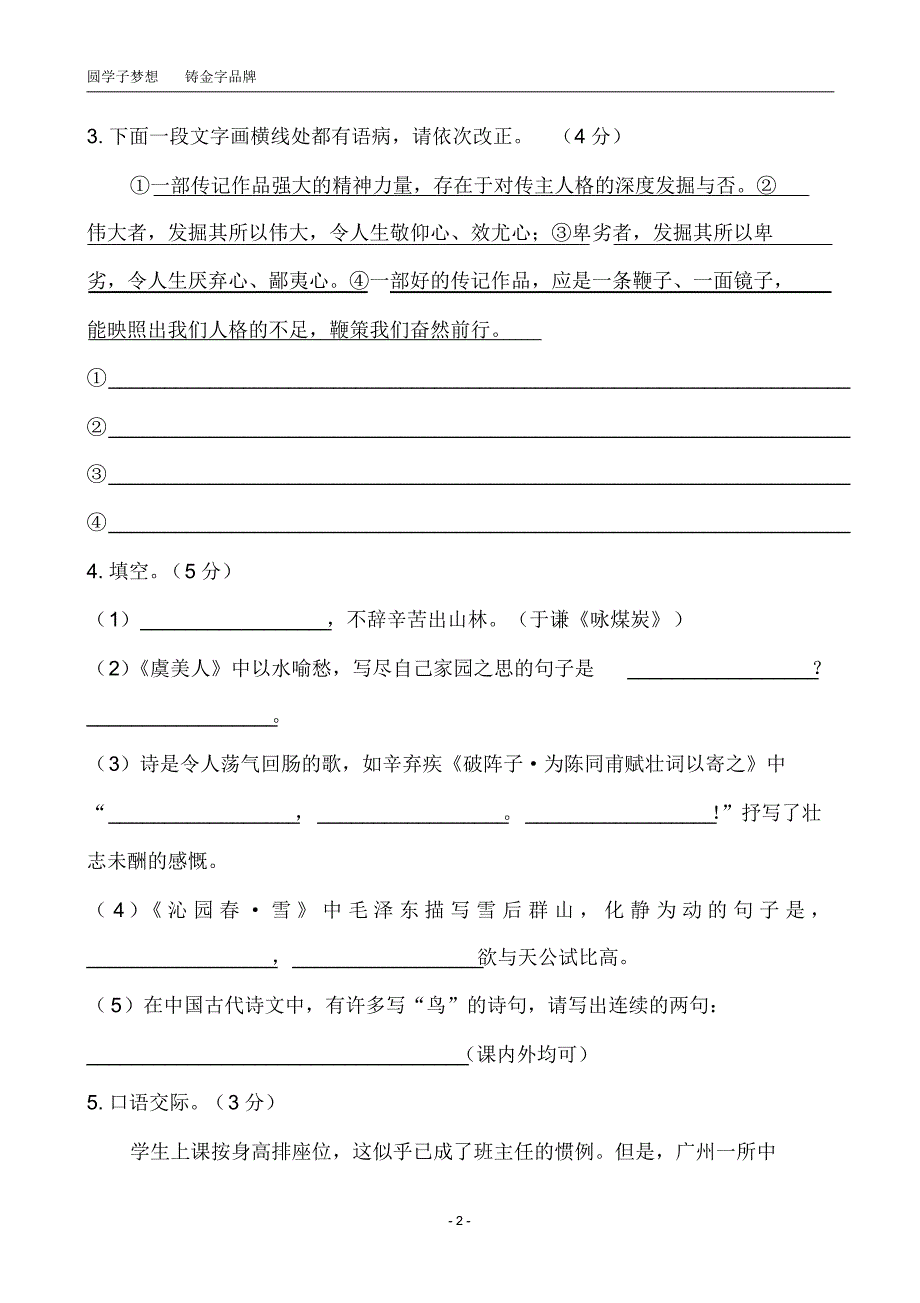 圆学子梦想 铸金字品牌
3. 下面一段文字画横线处都有语病，请依次改正。 （4 分）
①一部传记作品强大的精神力量，存在于对传主人格的深度发掘与否。②
伟大者，发掘其所以伟大，令人生敬仰心、效尤心；③卑劣者，发掘其所以卑
劣，令人生厌弃心、鄙夷心。④一部好的传记作品，应是一条鞭子、一面镜子，
能映照出我们人格的不足，鞭策我们奋然前行。
①
②
③
④
4. 填空。（5 分）
（1）____________，不辞辛苦出山林。（于谦《咏煤炭》）
（2）《虞美人》中以水喻愁，写尽自己家园之思的句子是 ____________？
____________。
（3）诗是令人荡气回肠的歌，如辛弃疾《破阵子·为陈同甫赋壮词以寄之》中
“____________，____________。____________！”抒写了壮
志未酬的感慨。
（4）《沁园春·雪》中毛泽东描写雪后群山，化静为动的句子是，
____________，____________欲与天公试比高。
（5）在中国古代诗文中，有许多写“鸟”的诗句，请写出连续的两句：
________________________（课内外均可）
5. 口语交际。（3 分）
学生上课按身高排座位，这似乎已成了班主任的惯例。但是，广州一所中
- 2 -